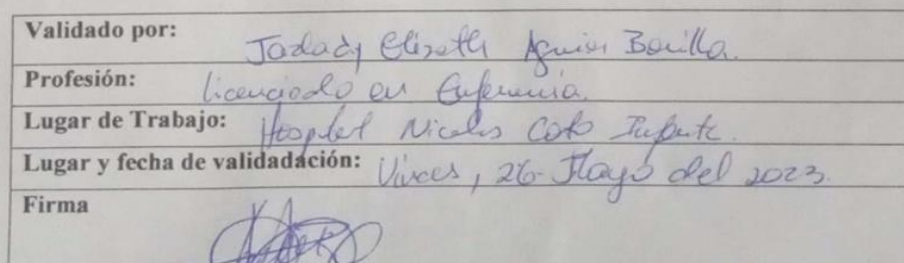 Validado por: Jazlady Elizeth Aguirre Bonilla.
Profesión: Licenciado en Enfermería.
Lugar de Trabajo: Hospital Nicolas Coto Infante.
Lugar y fecha de validadación: Vinces, 26 Mayo del 2023.
Firma